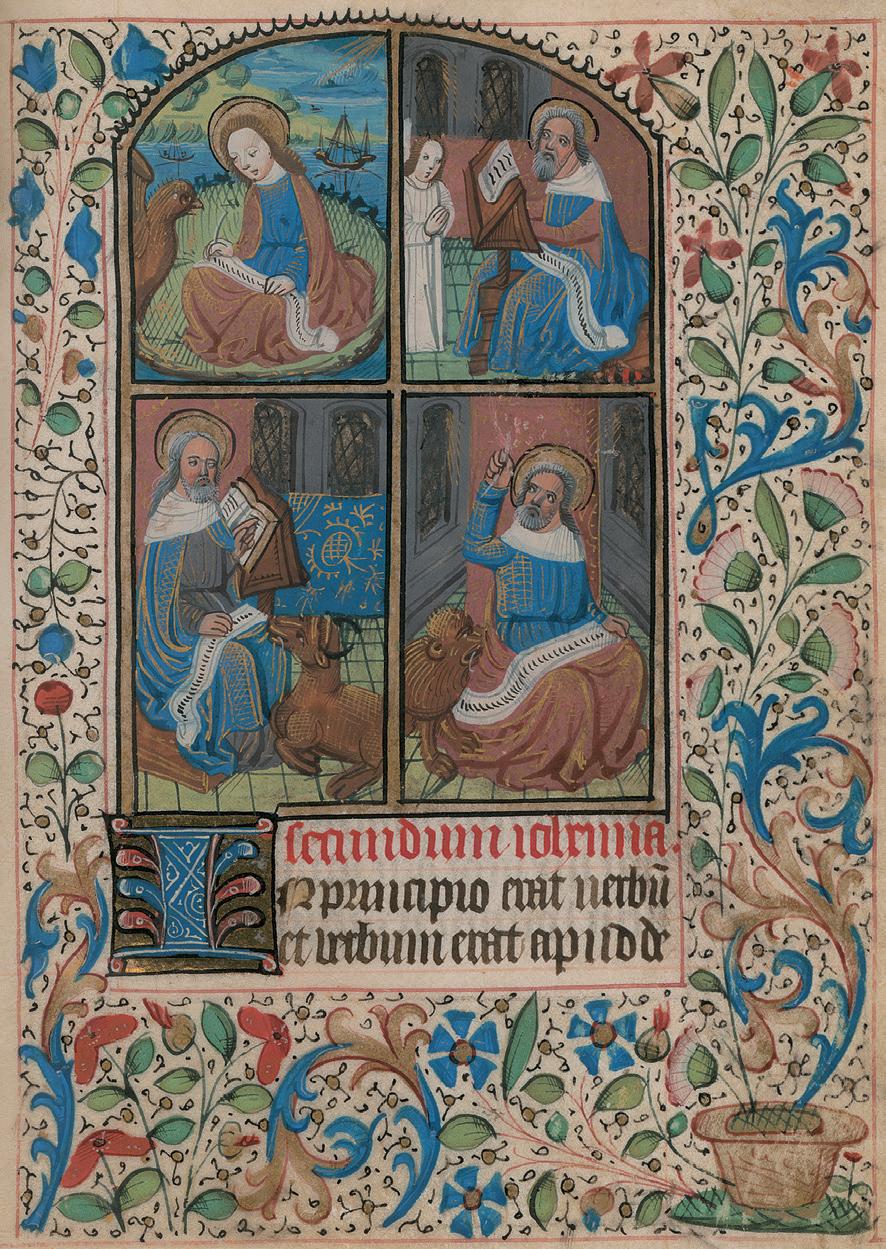 secundum iohanna.
In principio erat uerbū
et uerbum erat apud de